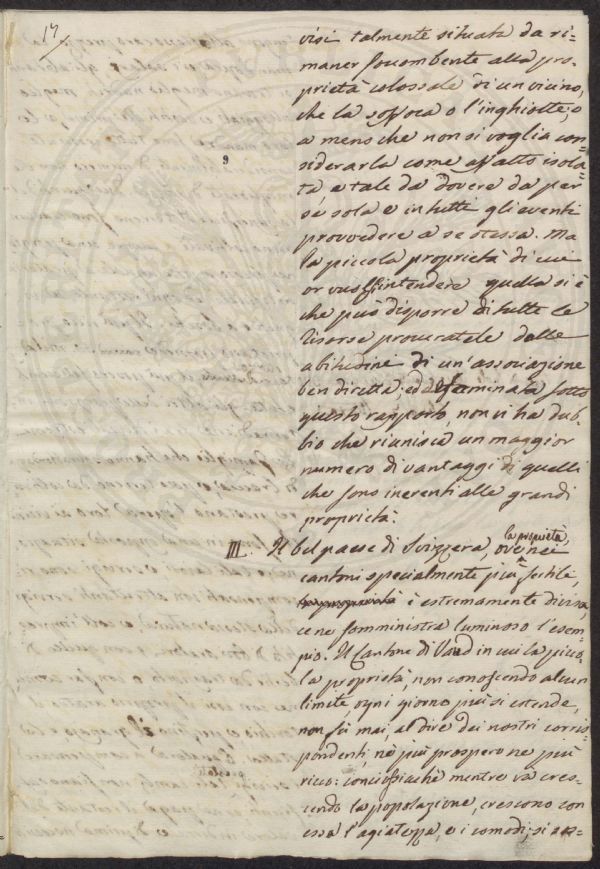 17
visi talmente situata da ri=
maner soccombente alla pro=
prietà colossale di un vicino,
che la soffoca o l'inghiotte; o
a mens che non si voglia con=
siderarla come affatto isola=
ta, e tale da dovere da per
sé sola e in tutti gli eventi
provvedere a se stessa. Ma
la piccola proprietà di cui
or vuossi intendere quella si è
che può disporre di tutte le
risorse procuratele dalle
abitudini di un'associazione
ben diretta; ed esaminata sotto
questo rapporto, non vi ha dub=
bio che riunisce un maggior
numero di vantaggi di quelli
che sono inerenti alle grandi
proprietà.
III. Il bel paese di Svizzera, ove nei
la proprietà,
cantoni specialmente più fertili,
la proprietà è estremamente divisa,
ce ne somministra luminoso l'esem=
pio. Il Cantone di Vaud in cui la picco=
la proprietà, non conoscendo alcun
limite ogni giorno più si estende,
non fù mai, al dire dei nostri corris=
pondenti, nè più prospero ne più
ricco: conciossiachè mentre va cres=
cendo la popolazione, crescono con
essa l'agiatezza, e i comodi; si